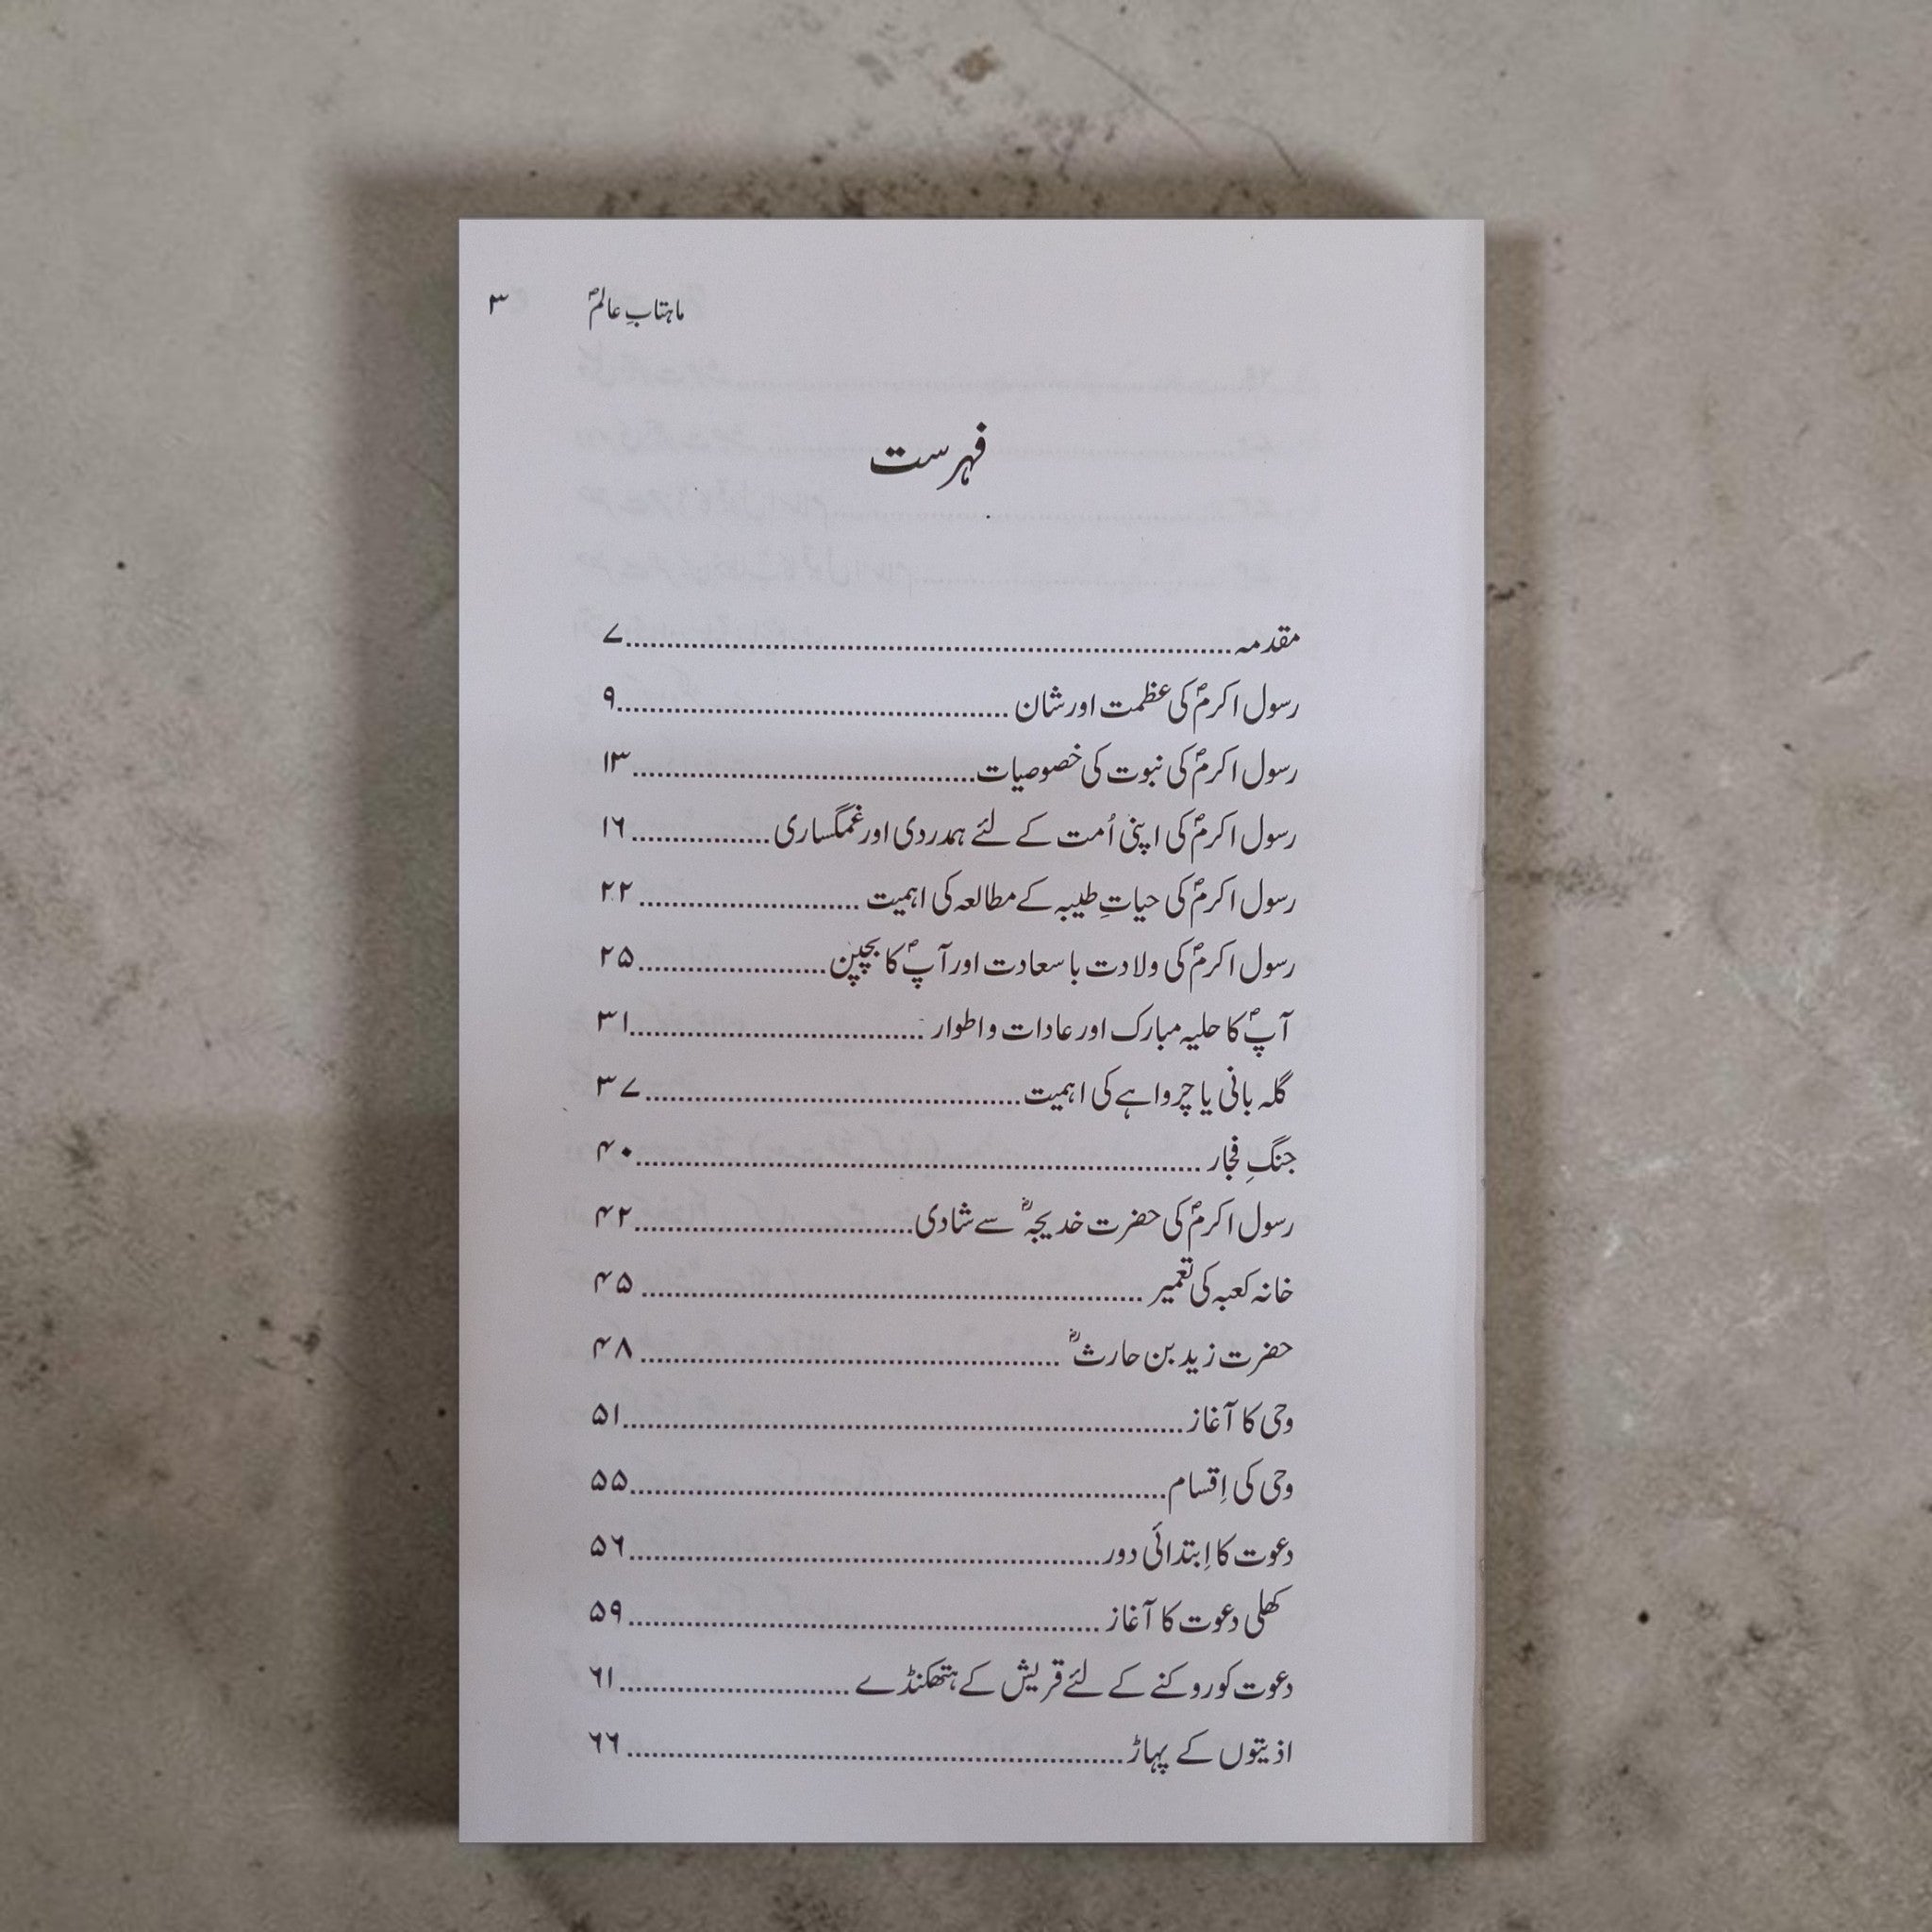 ماہتابِ عالمؐ ۳
فہرست
مقدمہ.......................................................................... ۷
رسول اکرمؐ کی عظمت اور شان ................................................ ۹
رسول اکرمؐ کی نبوت کی خصوصیات.......................................... ۱۳
رسول اکرمؐ کی اپنی اُمت کے لئے ہمدردی اور غمگساری................. ۱۶
رسول اکرمؐ کی حیاتِ طیبہ کے مطالعہ کی اہمیت ........................... ۲۲
رسول اکرمؐ کی ولادت باسعادت اور آپؐ کا بچپن....................... ۲۵
آپؐ کا حلیہ مبارک اور عادات و اطوار .................................... ۳۱
گلہ بانی یا چرواہے کی اہمیت.............................................. ۳۷
جنگِ فجار ..................................................................... ۴۰
رسول اکرمؐ کی حضرت خدیجہؓ سے شادی.................................. ۴۲
خانہ کعبہ کی تعمیر ............................................................. ۴۵
حضرت زید بن حارثؓ ................................................... ۴۸
وحی کا آغاز.................................................................... ۵۱
وحی کی اِقسام................................................................. ۵۵
دعوت کا اِبتدائی دور......................................................... ۵۶
کھلی دعوت کا آغاز ......................................................... ۵۹
دعوت کو روکنے کے لئے قریش کے ہتھکنڈے ............................ ۶۱
اذیتوں کے پہاڑ............................................................. ۶۶